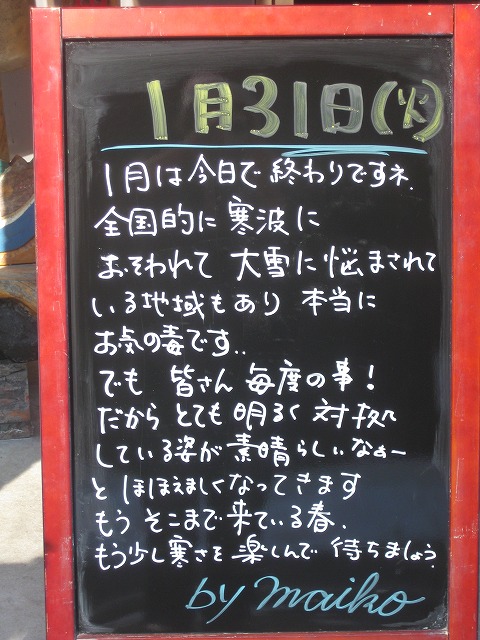 1月31日(火)
1月は今日で終わりですネ.
全国的に寒波に
おそわれて 大雪に悩まされて
いる地域もあり 本当に
お気の毒です..
でも 皆さん 毎度の事!
だから とても 明るく 対処
している姿が 素晴らしいなぁー
と ほほえましくなってきます
もう そこまで来ている春.
もう少し寒さを 楽しんで 待ちましょう.
by maiko